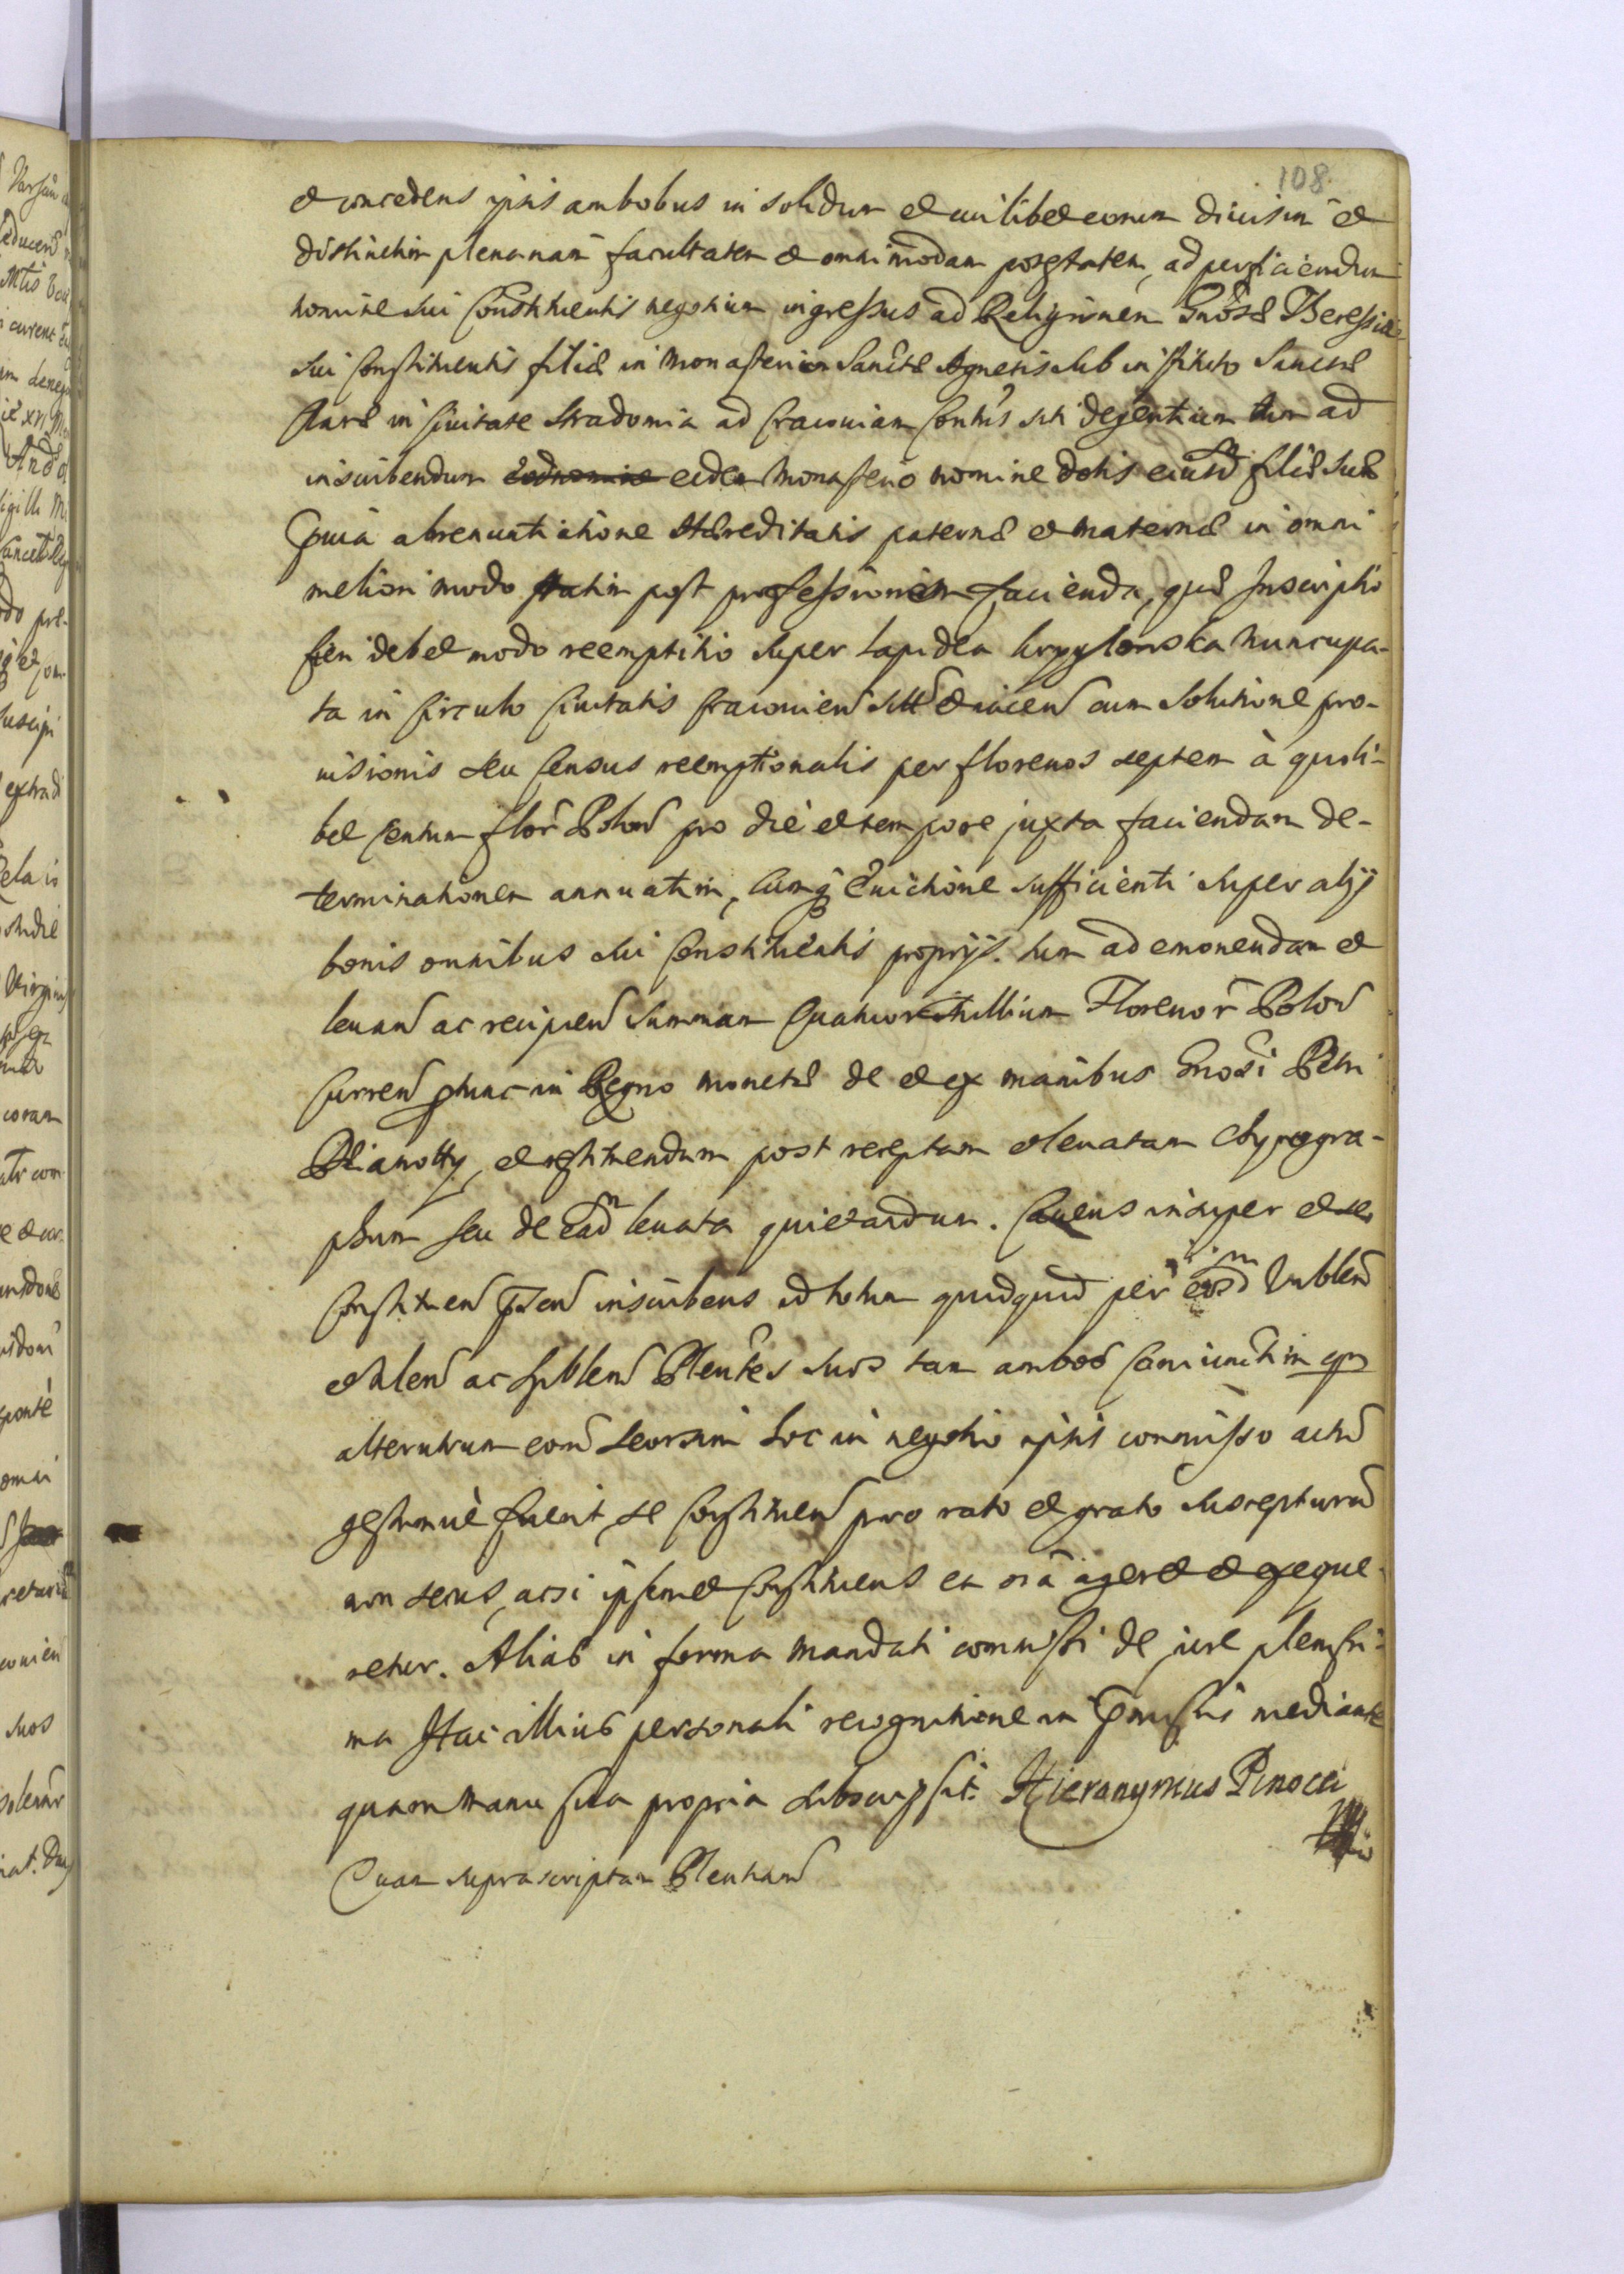 108.
et concedens ipsis ambobus in solidum et cuilibet eorum diuisim et
distinctim plenariam facultatem et omnimodam potestatem, ad perficiendum
nomine sui Constituentis negotium ingressus ad Religionem Gnosae Theressiae
sui Constituentis filiae in Monasterium Sanctae Agnetis sub instituto Sanctae
Clarae in Ciuitate Stradomia ad Cracouiam siti degentium tum ad
inscribendum eidem Monasterio nomine dotis eiusd filiae suae
abrenuntiatione Haereditatis paternae et maternae in omni
meliori modo statim post professionem facienda, quae Inscriptio
fieri debet modo reemptitio super Lapidea nuncupa-
ta in Circulo Ciuitatis Cracouien sitt et iacen cum solutione pro-
uisionis seu Census reemptionalis per florenos septem à quoli-
bet Centum flor Polon pro die et tempore juxta faciendam de-
terminationem annuatim, Cumq Euictione sufficienti super alijs
bonis omnibus sui Constituentis proprijs. tum ad emonendam et
leuand ac recipien summam Quatuor Millium Florenor Polon
Curren nunc in Regno monetae de et ex manibus Gnosi Petri
et restituendum post receptam et leuatam Chyrogra-
phum seu de ead leuata quietandum. Cauens insuper et se
Constituen inscribens id totum quidquid per eosd
ac Plentes suos tam ambos Coniunctim qm
alterutrum eorum seorsim hoc in negotio ipsis commisso actum
gestumuè fuerit, se Constituen pro rato et grato suscepturum
non secus, acsi ipsemet Constituens ea oia ageret et exeque-
retur. Alias in forma mandati commissi de jure plenissi-
ma Hac illius personali recognitione in praemissis mediante
quam manu sua propria subscripsit. Hieronymus Pinocci
Quam suprascriptam Plenham